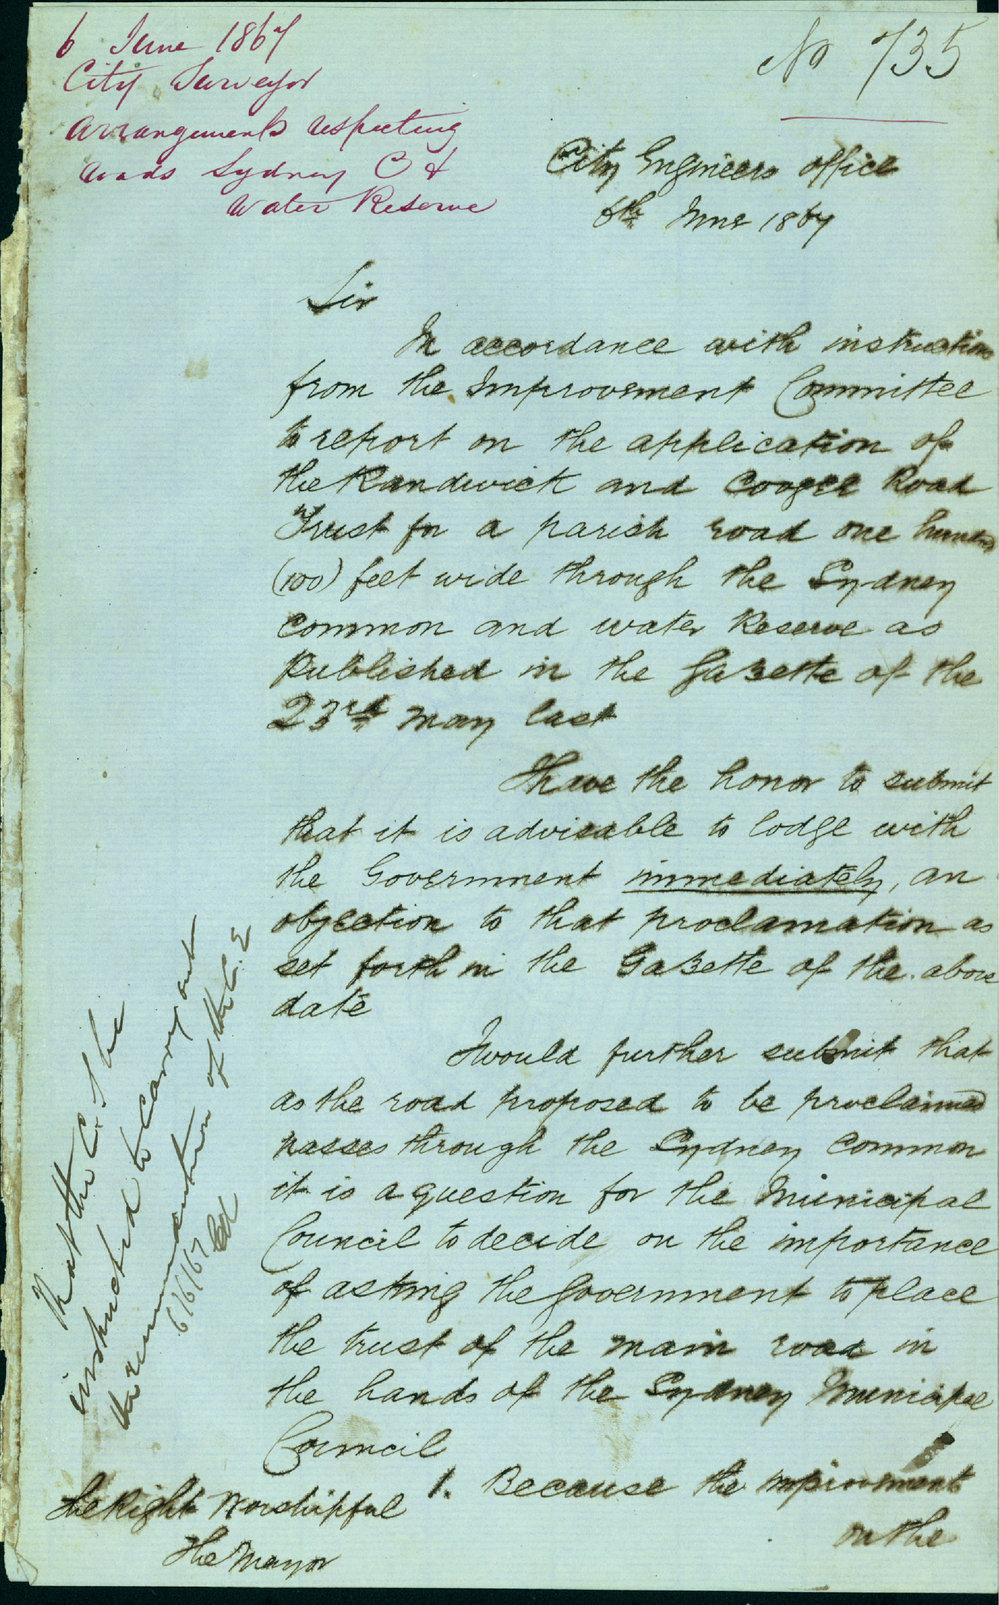 6 June 1867
City Surveyor
Arrangements respecting
roads Sydney C &
Water Reserve
No 735
City Engineers office
6th June 1867
Sir
In accordance with instruction
from the Improvement Committee
to report on the application of
the Randwick and Coogee Road
Trust for a parish road one hundred
(100) feet wide through the Sydney
Common and water Reserve as
Published in the Gazette of the
23rd may last
I have the honor to submit
that it is advisable to lodge with
the Government immediately, an
objection to that proclamation as
set forth in the Gazette of the above
date
I would further submit that
as the road proposed to be proclaimed
passes through the Sydney Common
it is a question for the Municipal
Council to decide on the importance
of asking the Government to place
the trust of the main road in
the hands of the Sydney Municipal
Council
1. Because the improvement
on the
The Right Worshipful
The Mayor
That the C. S be
instructed to carry out
the recommendation of the C. E
6/6/67